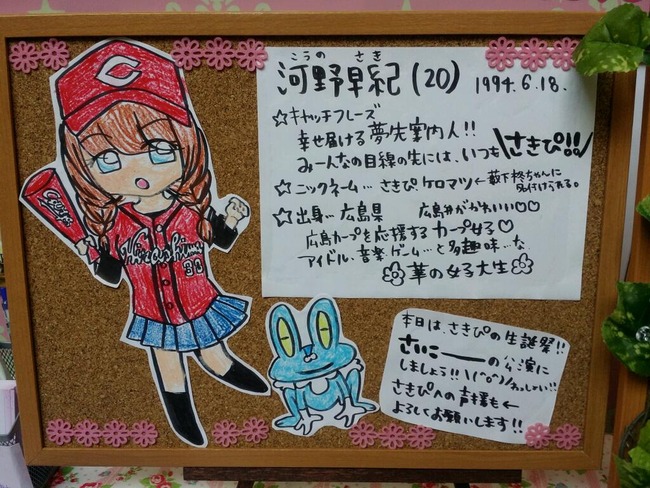 こうの さき
河野早紀(20) 1994.6.18.
☆キャッチフレーズ
幸せ届ける夢先案内人!!
みーんなの目線の先には、いつも さきぴ!!
☆ニックネーム… さきぴ ケロマツ←薮下柊ちゃんに
名付けられる。
☆出身…広島県 広島弁がかわいい♡♡
広島カープを応援するカープ女子♡
アイドル、音楽、ゲーム…と多趣味…な
華の女子大生
C
Hiroshima
30
本日は、さきぴの生誕祭!!
さいこーーの公演に
しましょう!!\(^o^)/わっしょい!!
さきぴへの声援も←
よろしくお願いします!!